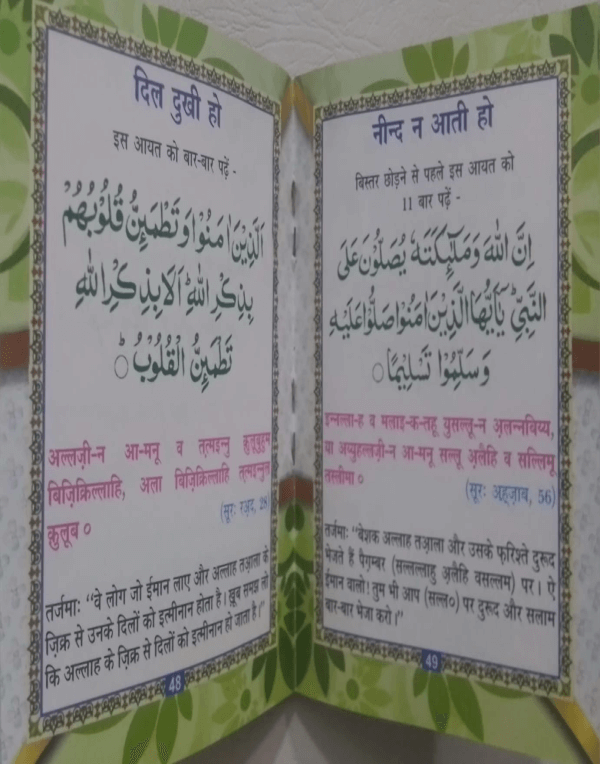 दिल दुखी हो
इस आयत को बार-बार पढ़ें -
اَلَّذِيْنَ اٰمَنُوْا وَتَطْمَئِنُّ قُلُوْبُهُمْ
بِذِكْرِ اللّٰهِ ؕ اَلَا بِذِكْرِ اللّٰهِ
تَطْمَئِنُّ الْقُلُوْبُ ؕ○
अल्लज़ी-न आ-मनू व तत्मइन्नु क़ुलूबुहुम
बिज़िक्रिल्लाहि, अला बिज़िक्रिल्लाहि तत्मइन्नुल
क़ुलूब ०
(सूरः रअ़द, 28)
तर्जमाः “वे लोग जो ईमान लाए और अल्लाह तआ़ला के
ज़िक्र से उनके दिलों को इत्मीनान होता है। ख़ूब समझ लो
कि अल्लाह के ज़िक्र से दिलों को इत्मीनान हो जाता है।”
48
नीन्द न आती हो
बिस्तर छोड़ने से पहले इस आयत को
11 बार पढ़ें -
اِنَّ اللّٰهَ وَمَلٰٓئِكَتَهٗ يُصَلُّوْنَ عَلَى
النَّبِيِّ ؕ يٰۤاَيُّهَا الَّذِيْنَ اٰمَنُوْا صَلُّوْا عَلَيْهِ
وَسَلِّمُوْا تَسْلِيْمًا ○
इन्नल्ला-ह व मलाइ-क-तहू युसल्लू-न अ़लन्नबिय्यि,
या अय्युहल्लज़ी-न आ-मनू सल्लू अ़लैहि व सल्लिमू
तस्लीमा ०
(सूरः अह्ज़ाब, 56)
तर्जमाः “बेशक अल्लाह तआ़ला और उसके फ़रिश्ते दुरूद
भेजते हैं पैग़म्बर (सल्लल्लाहु अ़लैहि वसल्लम) पर। ऐ
ईमान वालो! तुम भी आप (सल्ल०) पर दुरूद और सलाम
बार-बार भेजा करो।”
49